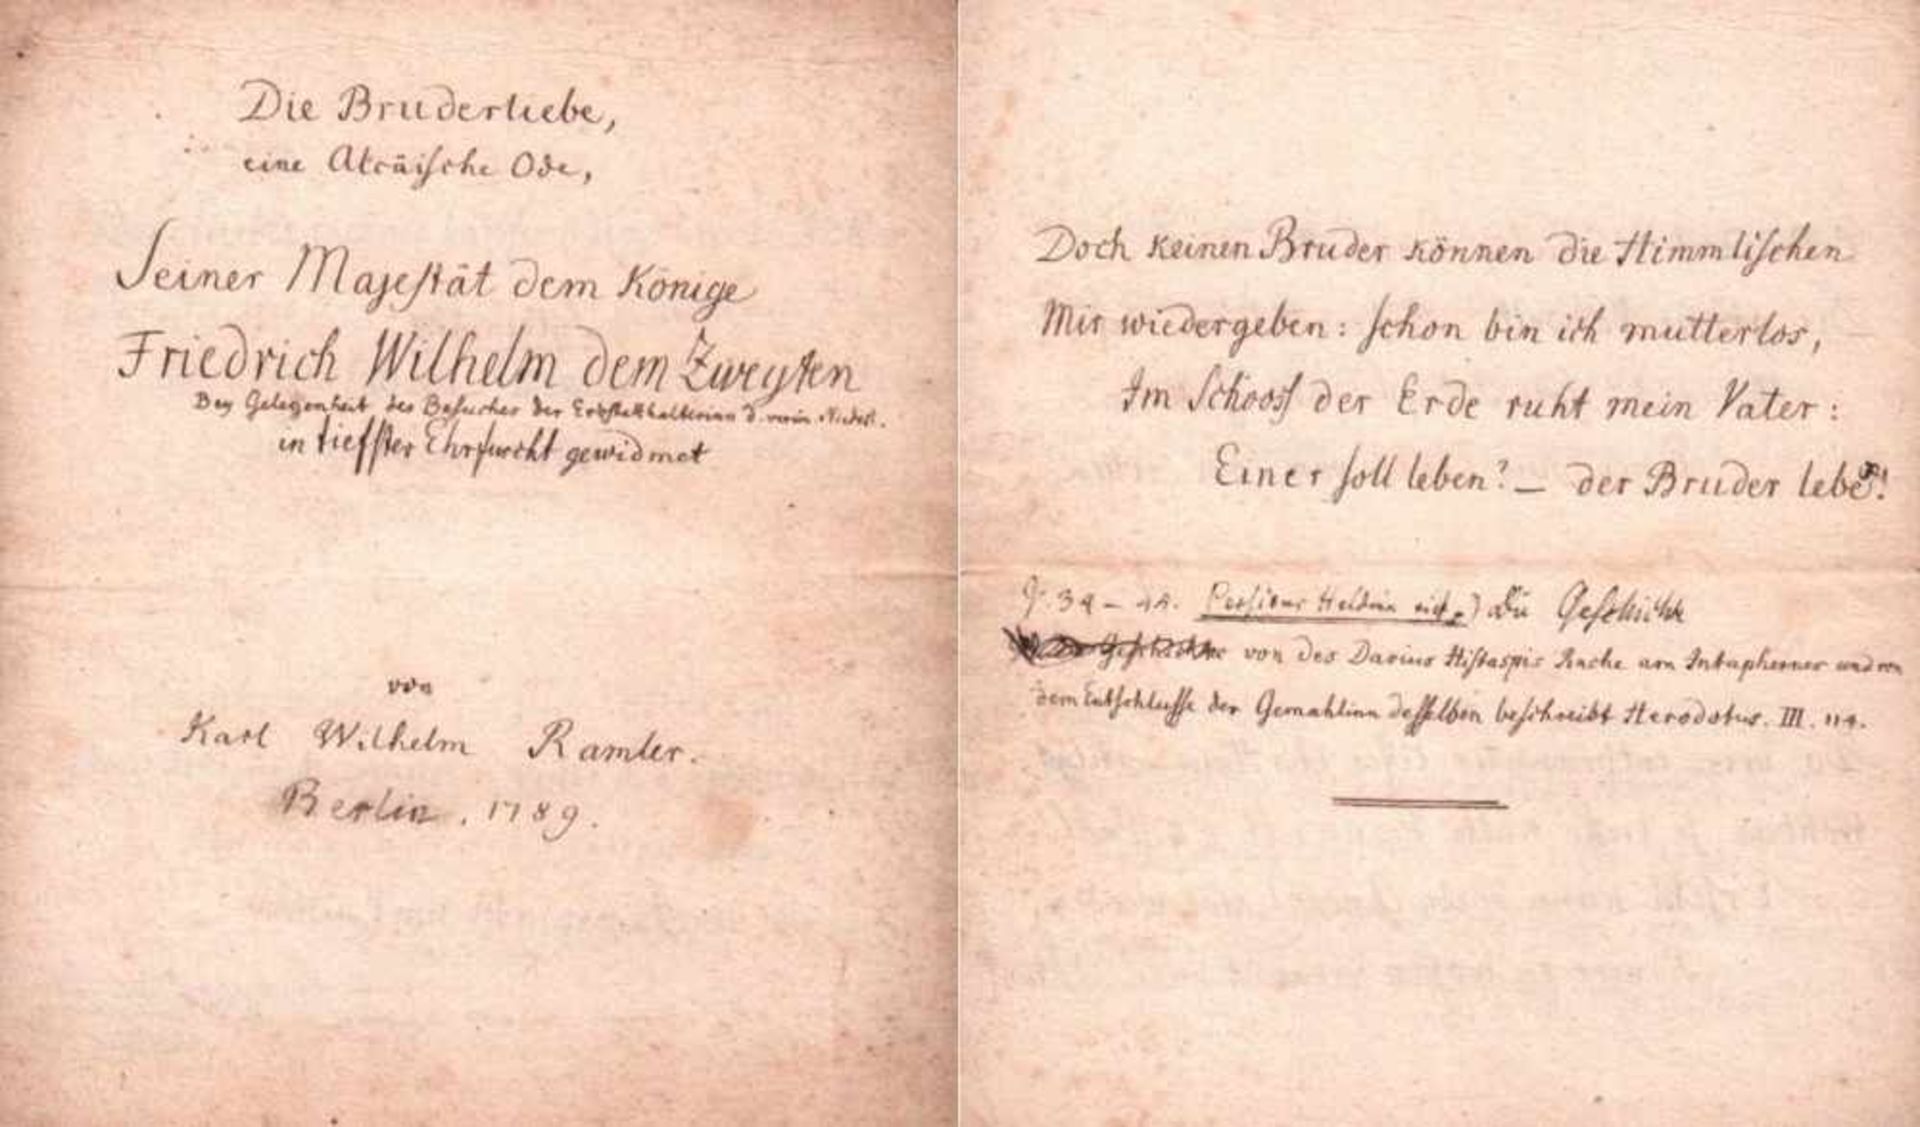 Die Bruderliebe,
eine Alcäische Ode,
Seiner Majestät dem Könige
Friedrich Wilhelm dem Zweyten
Bey Gelegenheit des Besuches der Erbstatthalterinn d. verein. Niederl.
in tiefster Ehrfurcht gewidmet
von
Karl Wilhelm Ramler.
Berlin. 1789.
Doch keinen Bruder können die Himmlischen
Mir wiedergeben: schon bin ich mutterlos,
Im Schooss der Erde ruht mein Vater:
Einer soll leben? — der Bruder lebe!
Persiens Heldin Die Geschichte
von des Darius Histaspis Rache am Intaphernes und von
dem Entschlusse der Gemahlinn desselben beschreibt Herodotus. III. 119.